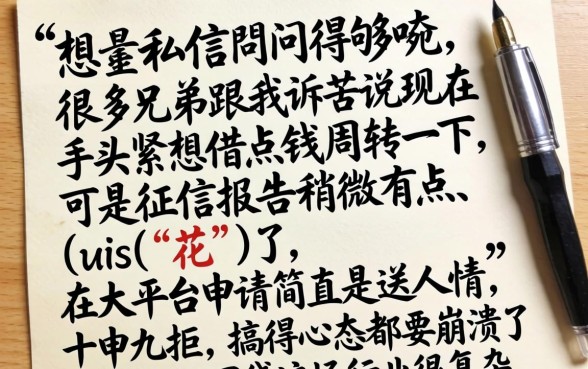 “想量私信問问得够唍,
很多兄弟跟我诉苦说现在
手头紧想借点钱周转一下,
可是征信报告稍微有点、
(uis(“花”)了,
在大平台申请简直是送人情,”
十申九拒, 搞得心态都要崩溃了